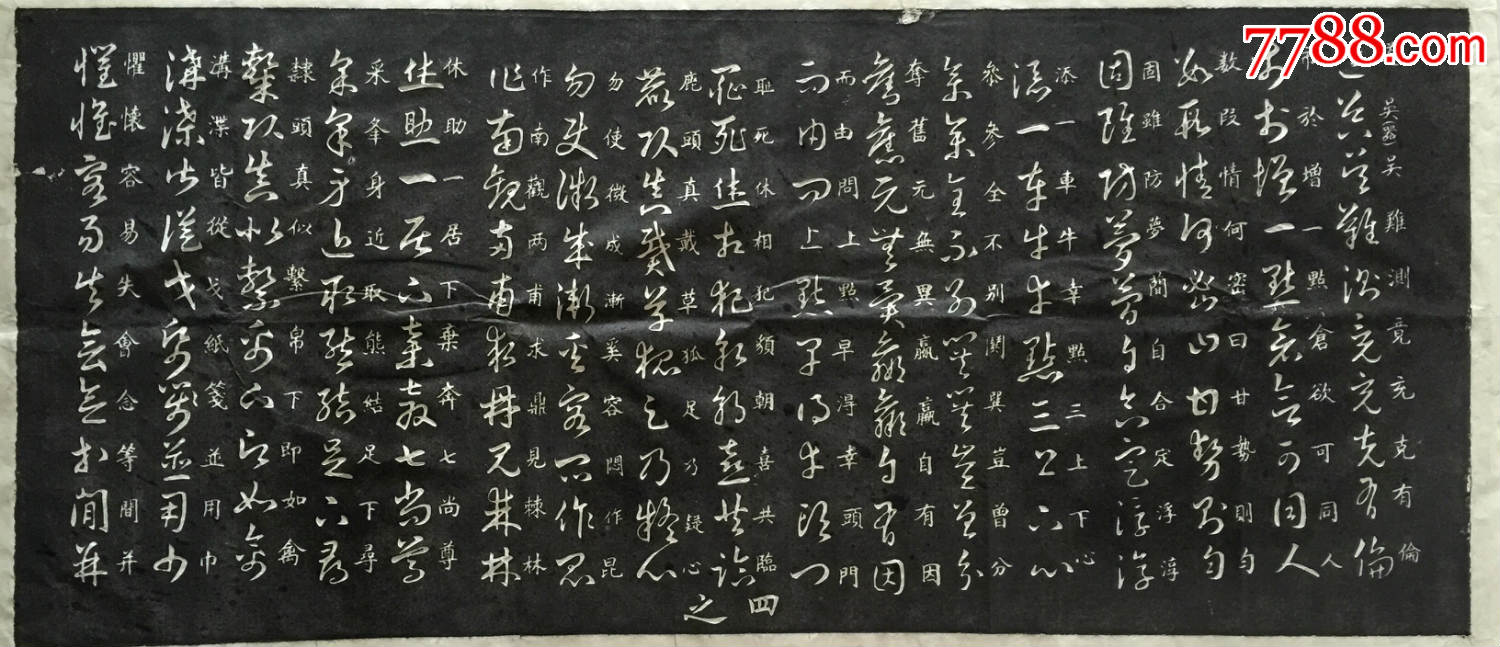 7788.com
吳難測竟充克有倫
於增一點倉欲可同人
数段情何密曰甘勢則勻
固雖防夢簡自合定浮浮
添一車牛幸點三上下心
參參全不別閧巽豈曾分
奪舊元無異羸贏自有因
而由問上點早淂幸頭門
耻死休相犯貌朝喜共臨
鹿頭真戴草狐足乃疑心
勿使微成漸奚容悶作昆
作南觀两甫求鼎見棘林
休助一居下棄奔七尚尊
采夆身近取熊結足下尋
隸頭真似繫帛下即如禽
溝渫皆從戈紙笺並用巾
懼懷容易失會念等閒并
四之